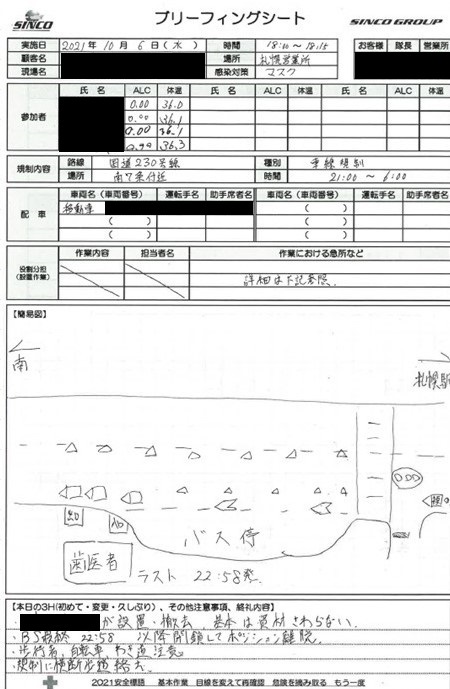 SINCO ブリーフィングシート SINCO GROUP
実施日 2021年 10月 6日(水) 時間 18:10 ~ 18:15 お客様 隊長 営業所
顧客名 場所 札幌営業所
現場名 感染対策 マスク
参加者 氏名 ALC 体温 氏名 ALC 体温 氏名 ALC 体温
0.00 36.0
0.00 36.1
0.00 36.1
0.00 36.3
規制内容 路線 国道230号線 種別 車線規制
場所 南7条付近 時間 21:00 ~ 6:00
配車 車両名(車両番号) 運転手名 助手席者名 車両名(車両番号) 運転手名 助手席者名
移動車 ( )
( ) ( )
( ) ( )
役割分担(設置作業) 作業内容 担当者名 作業における急所など
詳細は下記参照.
【簡易図】
南
札幌駅
バス停
歯医者
ラスト 22:58発.
【本日の3H(初めて・変更・久しぶり)、その他注意事項、終礼内容】
・ が設置、撤去、基本は資材さわらない.
・BS最終 22:58 以降開鎖してポジション離脱.
・歩行者、自転車、わき道注意.
2021安全標語 基本作業 目線を変えて再確認 危険を摘み取る もう一度